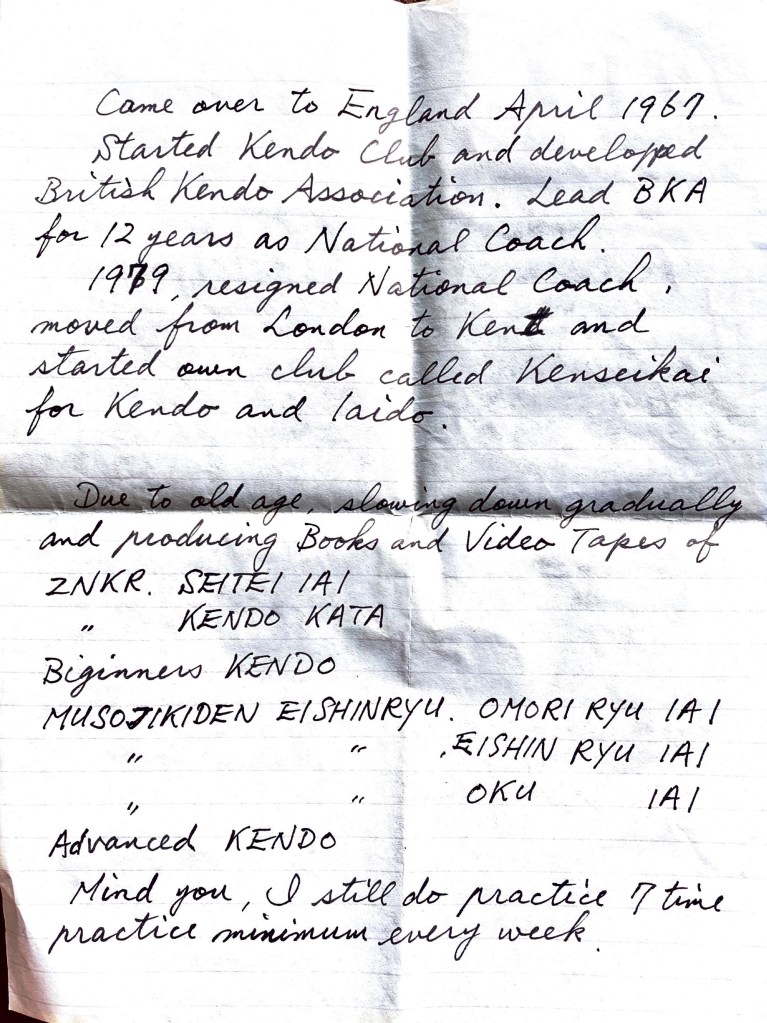 Came over to England April 1967.
Started Kendo Club and developped
British Kendo Association. Lead BKA
for 12 years as National Coach.
1979, resigned National Coach,
moved from London to Kent and
started own club called Kenseikai
for Kendo and Iaido.
Due to old age, slowing down gradually
and producing Books and Video Tapes of
ZNKR. SEITEI IAI
" KENDO KATA
Biginners KENDO
MUSOJIKIDEN EISHINRYU. OMORI RYU IAI
" " . EISHIN RYU IAI
" " OKU IAI
Advanced KENDO
Mind you, I still do practice 7 time
practice minimum every week.